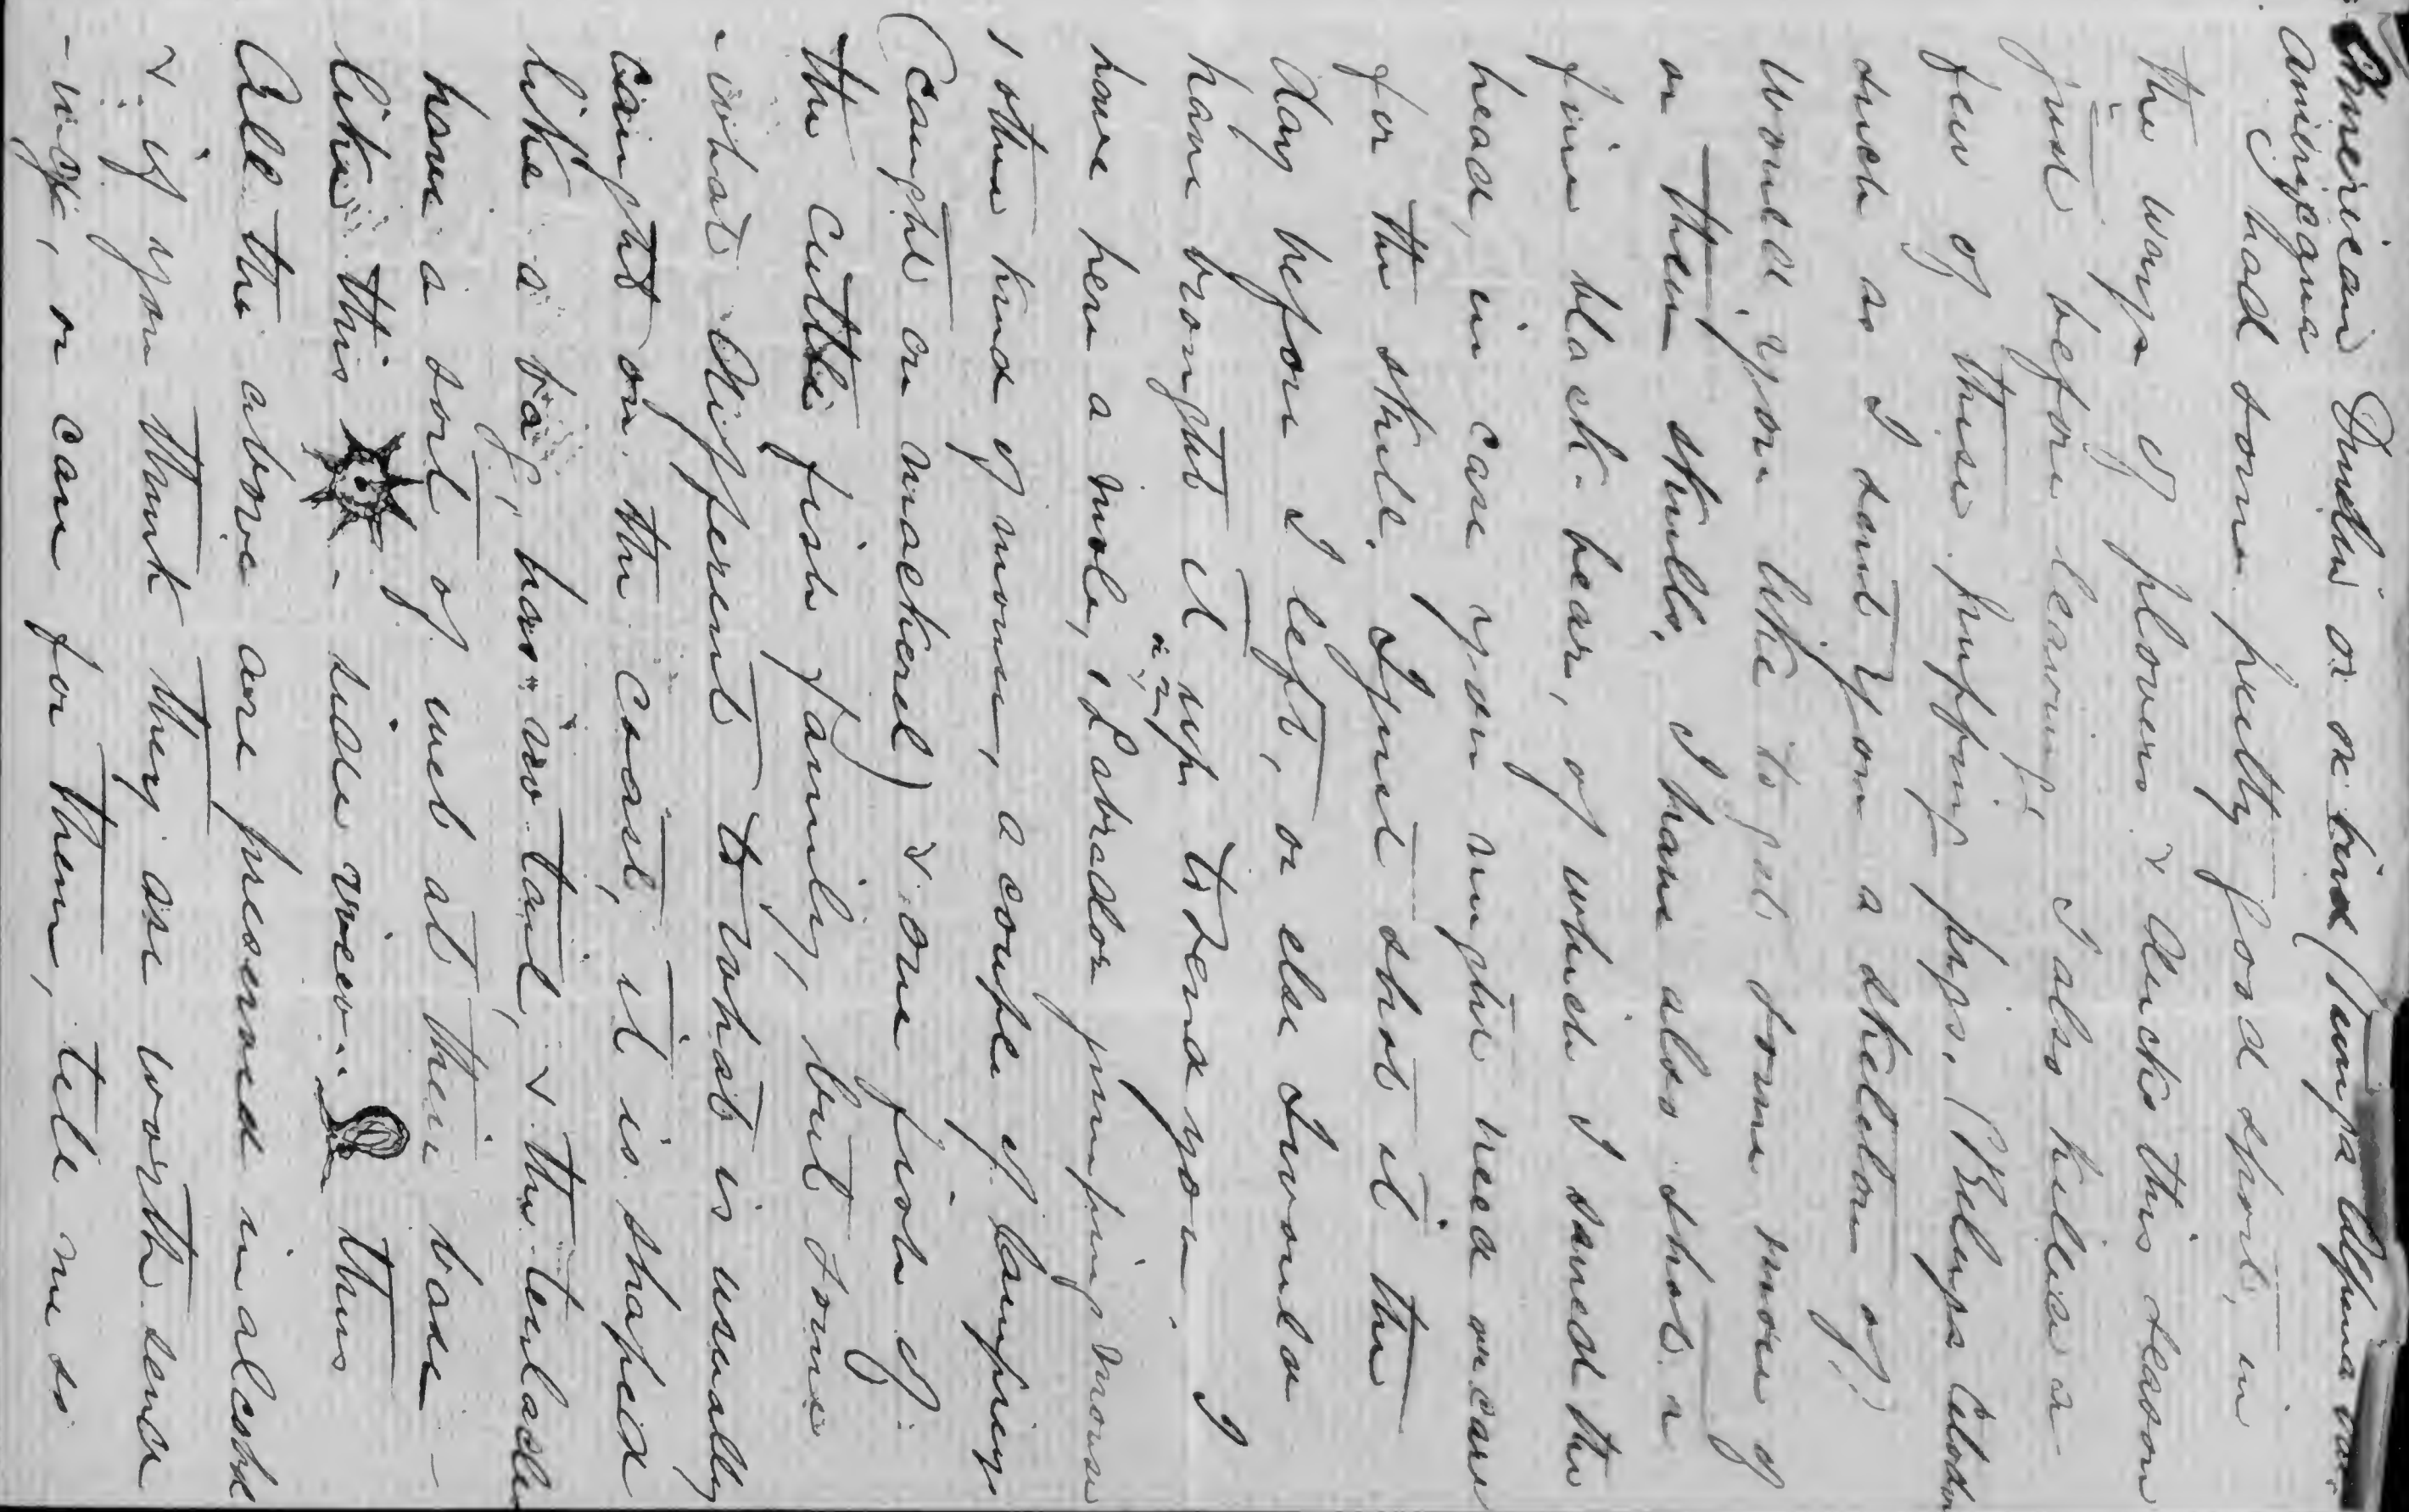 American Dunlin or ox bird (Tringa Alpina var.
Americana
I had some pretty good sport, in
the ways of plovers & ducks this season
just before leaving, I also killed a
few of these puffing pigs. (Beluga
such as I sent you a skeleton of,
would you like to get some more of
or their skulls. I have also shot a
fine black-bear, of which I saved the
head, in case you might need or care
for the skull. I just shot it the
day before I left, or else I would
have brought it up to send you. I
have here a mole, a Labrador jumping mouse
1 other kind of mouse, a couple of lampreys
(caught on mackerel) & one fish of
the cuttle fish family, but some
-what different to what is usually
caught on the coast, it is shaped
like a bag, has no tail, & the tentacles
have a sort of web at their base -
like this - side view thus
All the above are preserved in alcohol
& if you think they are worth send
-ing, or care for them, tell me so